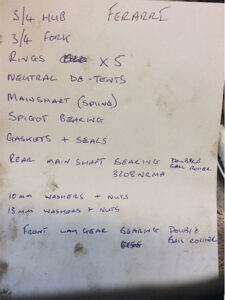 5/4 HUB FERARRI
3/4 FORK
RINGS X5
NEUTRAL DE-TENTS
MAINSHAFT (SPLINE)
SPIGOT BEARING
GASKETS + SEALS
REAR MAIN SHAFT BEARING DOUBLE
BALL ROLLER
3208NRMA
10MM WASHERS + NUTS
13MM WASHERS + NUTS
FRONT LAY GEAR BEARING DOUBLE
BALL ROLLER